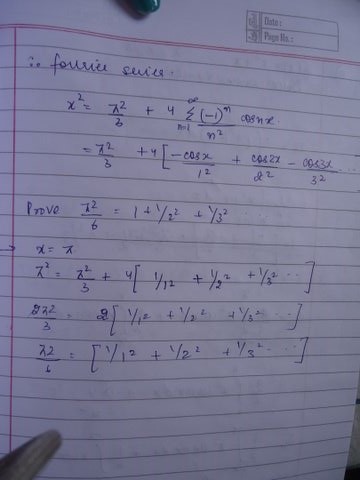 Date :
Page No. :
∴ fourier series.
x² = π²/3 + 4 ∞Σn=1 (-1)ⁿ/n² cosnx
= π²/3 + 4 [ -cosx/1² + cos2x/2² - cos3x/3² ...
Prove π²/6 = 1 + 1/2² + 1/3²
→ x = π
π² = π²/3 + 4 [ 1/1² + 1/2² + 1/3² ... ]
2π²/3 = 2 [ 1/1² + 1/2² + 1/3² ... ]
π2/6 = [ 1/1² + 1/2² + 1/3² ... ]